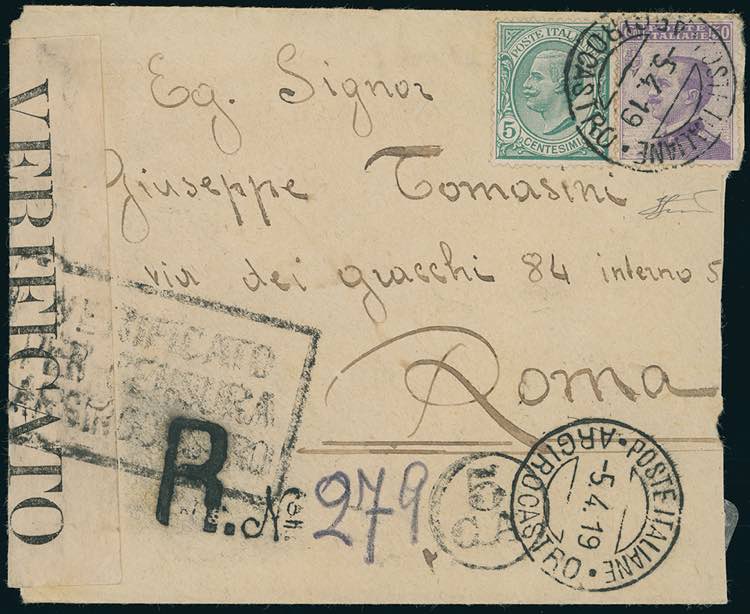 VERIFICATO
POSTE ITALIANE
5
CENTESIMI
POSTE ITALIANE
50
POSTE ITALIANE • ARGIROCASTRO •
-5.4.19
Eg. Signor
Giuseppe Tomasini
via dei gracchi 84 interno 5
Roma
VERIFICATO
PER CENSURA
R. N
279
5
C.A
POSTE ITALIANE • ARGIROCASTRO •
-5.4.19